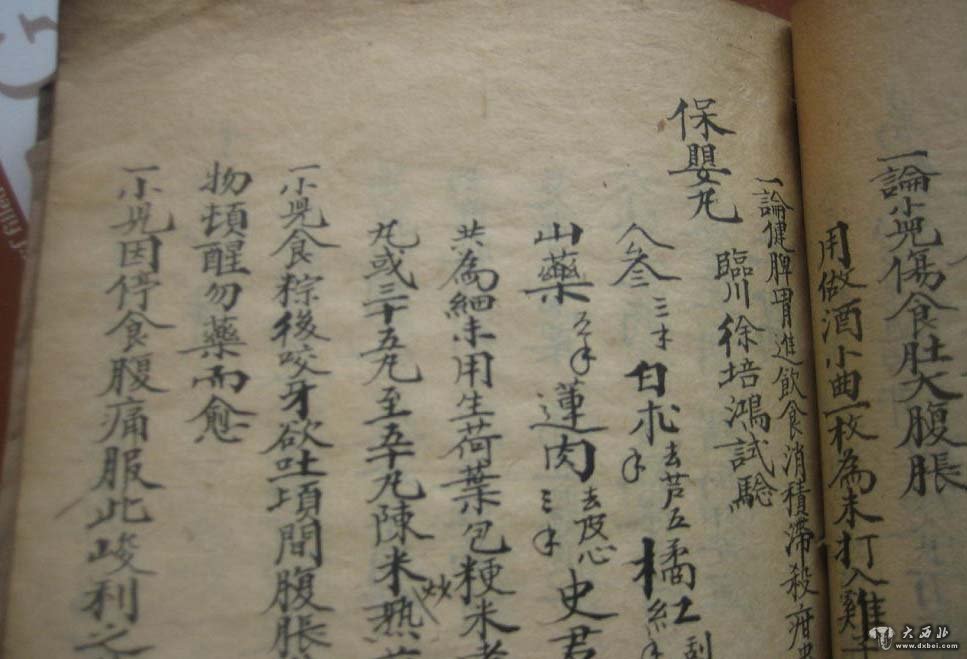 一論小兒傷食肚大腹脹
用做酒小曲一枚為末打入雞子
一論健脾胃進飲食消積滯殺疳虫
保嬰丸 臨川徐培鴻試驗
人參三木 白朮去芦五木 橘紅刮
山藥 蓮肉去皮心三木 史君
共為細末用生荷葉包粳米煮
丸或三十五丸至五十丸陳米炒熟
一小兒食粽後咬牙欲吐頃間腹脹
物頓醒勿藥而愈
一小兒因停食腹痛服此峻利之
大西北
www.dxbei.com